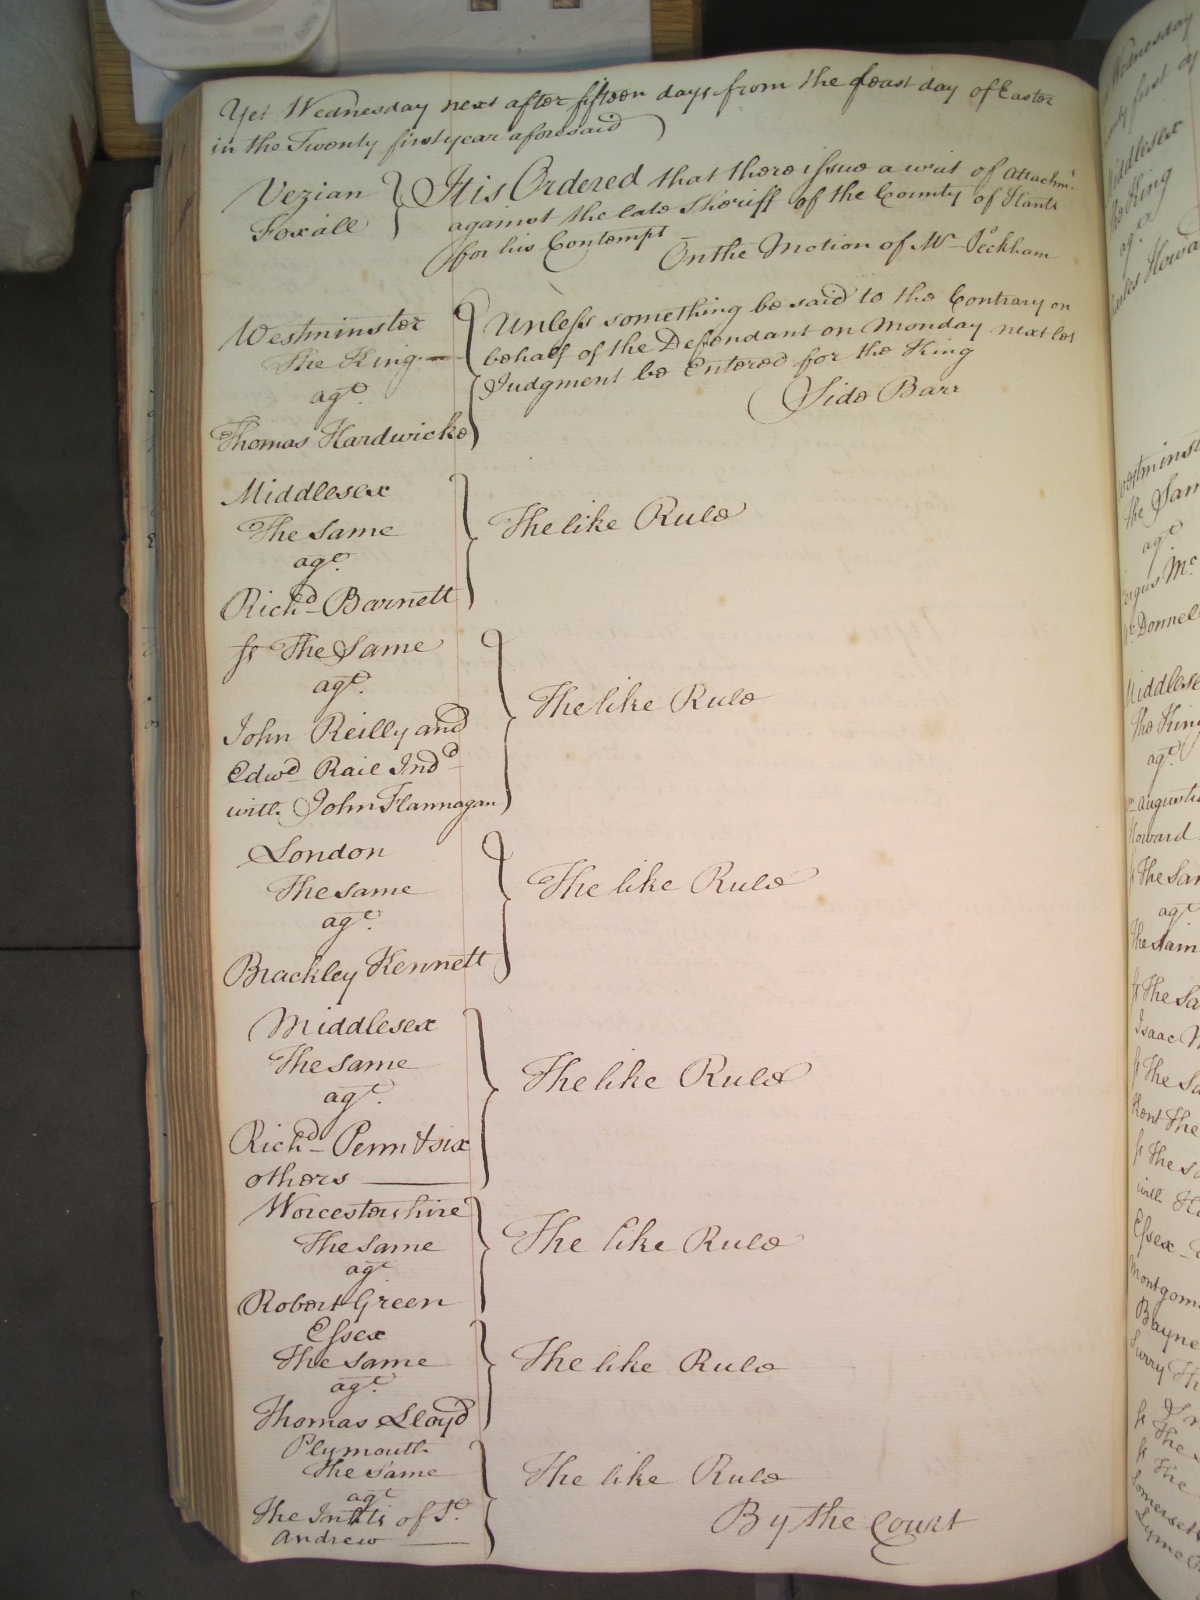 Yet Wednesday next after fifteen days from the feast day of Easter
in the Twenty first year aforesaid
Vezian
Foxall
It is Ordered that there issue a writ of Attachmt.
against the late Sheriff of the County of Hants
for his Contempt
On the Motion of Mr. Peckham
Westminster
The King
agt.
Thomas Hardwicke
Unless something be said to the Contrary on
behalf of the Defendant on Monday next let
Judgment be Entered for the King
Side Barr
Middlesex
The Same
agt.
Richd. Barnett
The like Rule
fs The Same
agt.
John Reilly and
Edwd. Rail Indd.
with John Flannagan
The like Rule
London
The same
agt.
Brackley Kennett
The like Rule
Middlesex
The same
agt.
Richd. Penn & six
others
The like Rule
Worcestershire
The same
agt.
Robert Green
The like Rule
Essex
The same
agt.
Thomas Lloyd
The like Rule
Plymouth
The Same
agt
The Inhts of St.
Andrew
The like Rule
By the Court
Wednesday
Middlesex
The King
agt.
Westminst
The Sam
agt
Mc
Donnel
Middlese
The King
agt.
Augusti
Howard
fs The Sa
agt
The Sam
fs The Sa
Isaac
fs The Sa
Kent The
fs The Sa
with
Essex
Montgom
Bayne
Surry Th
fs The
fs The
Somerset
Lyme